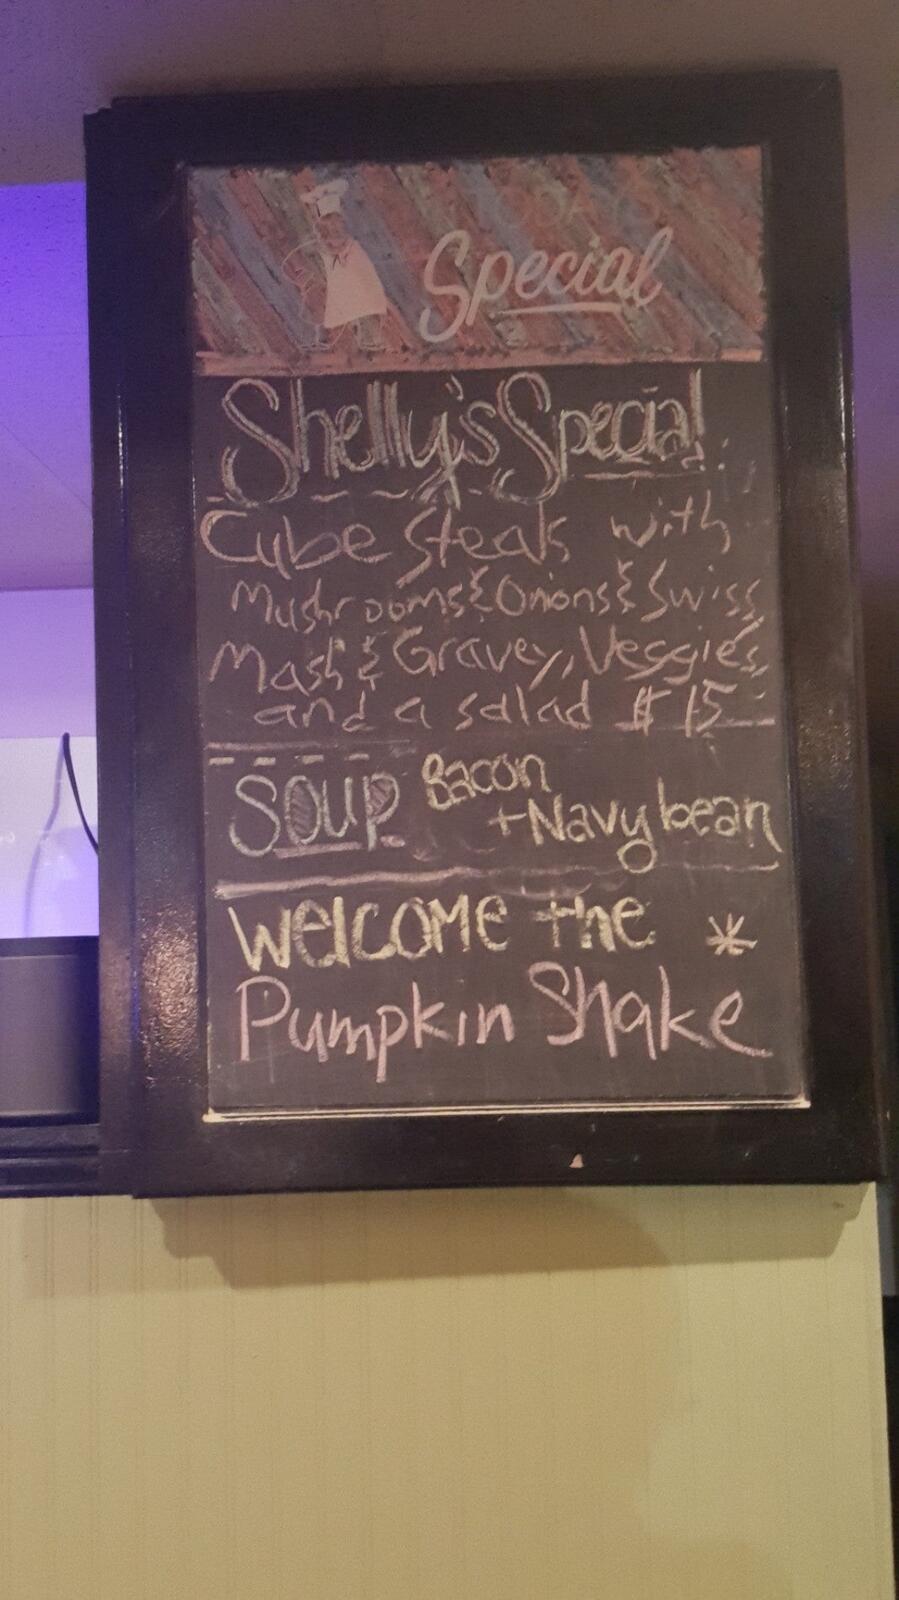 Special
Shelly's Special
Cube steak with
Mushrooms & Onions & Swiss,
Mash & Gravey, Veggies,
and a salad $15
Soup Bacon
+Navy bean
Welcome the *
Pumpkin Shake